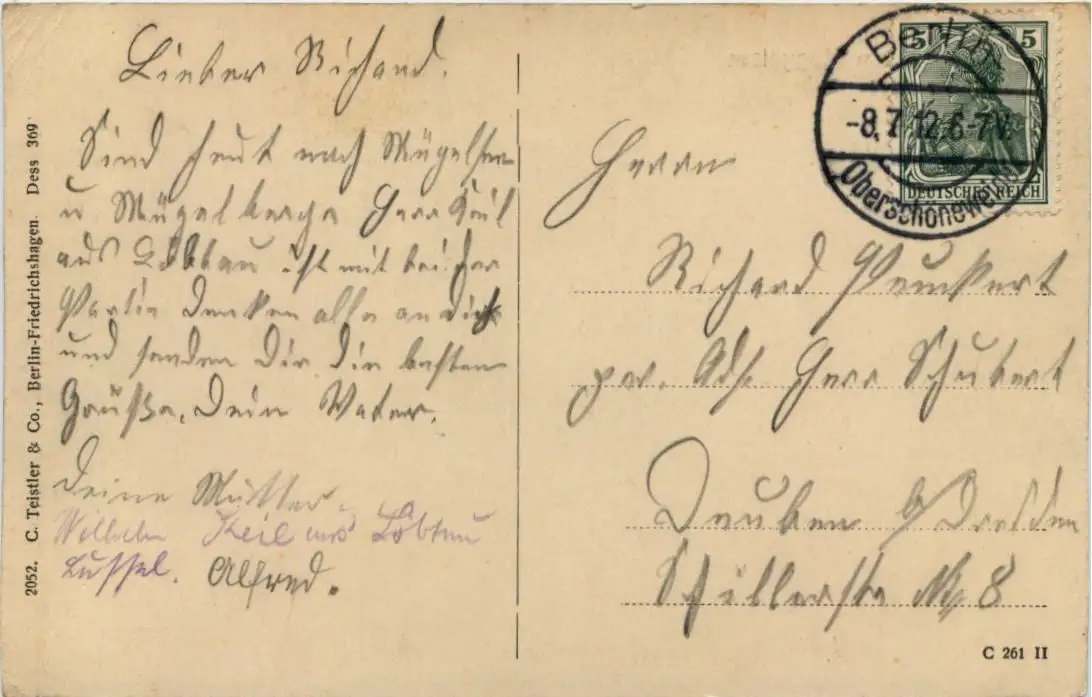 Lieber Richard.
Sind heut nach Mügelsee
u Mügelberge Herr Keil
aus Löbtau ist mit bei der
Partie denken alle an dich
und senden Dir die besten
Grüße, Dein Vater.
Deine Mutter.
Wilhelm Keil aus Löbtau
Alfred.
2052. C. Teistler & Co., Berlin-Friedrichshagen. Dess 369
Berlin
-8.7.12.6-7V.
Oberschöneweide
5 5
DEUTSCHES REICH
Herrn
Richard Peuckert
pr. Adr. Herr Schubert
Deuben b/ Dresden
Schillerstr No 8
C 261 II